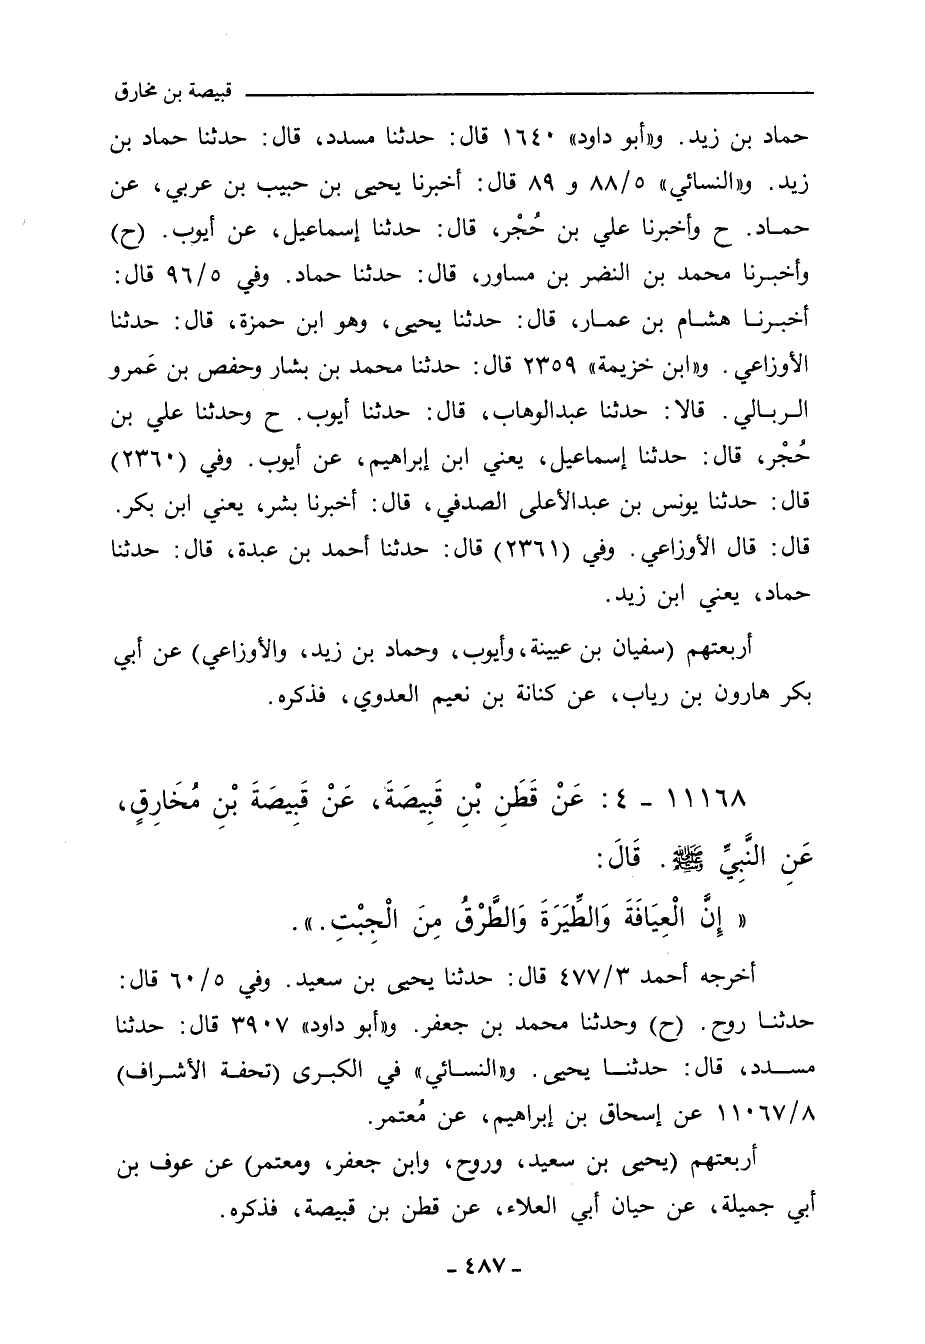 قبيصة بن مخارق
حماد بن زيد. و«أبو داود» ١٦٤٠ قال: حدثنا مسدد، قال: حدثنا حماد بن
زيد. و«النسائي» ٨٨/٥ و ٨٩ قال: أخبرنا يحيى بن حبيب بن عربي، عن
حماد. ح وأخبرنا علي بن حُجْر، قال: حدثنا إسماعيل، عن أيوب. (ح)
وأخبرنا محمد بن النضر بن مساور، قال: حدثنا حماد. وفي ٩٦/٥ قال:
أخبرنا هشام بن عمار، قال: حدثنا يحيى، وهو ابن حمزة، قال: حدثنا
الأوزاعي. و«ابن خزيمة» ٢٣٥٩ قال: حدثنا محمد بن بشار وحفص بن عَمرو
الربالي. قالا: حدثنا عبدالوهاب، قال: حدثنا أيوب. ح وحدثنا علي بن
حُجْر، قال: حدثنا إسماعيل، يعني ابن إبراهيم، عن أيوب. وفي (٢٣٦٠)
قال: حدثنا يونس بن عبدالأعلى الصدفي، قال: أخبرنا بشر، يعني ابن بكر.
قال: قال الأوزاعي. وفي (٢٣٦١) قال: حدثنا أحمد بن عبدة، قال: حدثنا
حماد، يعني ابن زيد.
أربعتهم (سفيان بن عيينة، وأيوب، وحماد بن زيد، والأوزاعي) عن أبي
بكر هارون بن رياب، عن كنانة بن نعيم العدوي، فذكره.
١١١٦٨ - ٤: عَنْ قَطَنِ بْنِ قَبِيصَةَ، عَنْ قَبِيصَةَ بْنِ مُخَارِقٍ،
عَنِ النَّبِيِّ ﷺ. قَالَ:
« إِنَّ الْعِيَافَةَ وَالطِّيَرَةَ وَالطَّرْقُ مِنَ الْجِبْتِ.».
أخرجه أحمد ٤٧٧/٣ قال: حدثنا يحيى بن سعيد. وفي ٦٠/٥ قال:
حدثنا روح. (ح) وحدثنا محمد بن جعفر. و«أبو داود» ٣٩٠٧ قال: حدثنا
مسدد، قال: حدثنا يحيى. و«النسائي» في الكبرى (تحفة الأشراف)
١١٠٦٧/٨ عن إسحاق بن إبراهيم، عن مُعتمر.
أربعتهم (يحيى بن سعيد، وروح، وابن جعفر، ومعتمر) عن عوف بن
أبي جميلة، عن حيان أبي العلاء، عن قطن بن قبيصة، فذكره.
- ٤٨٧ -